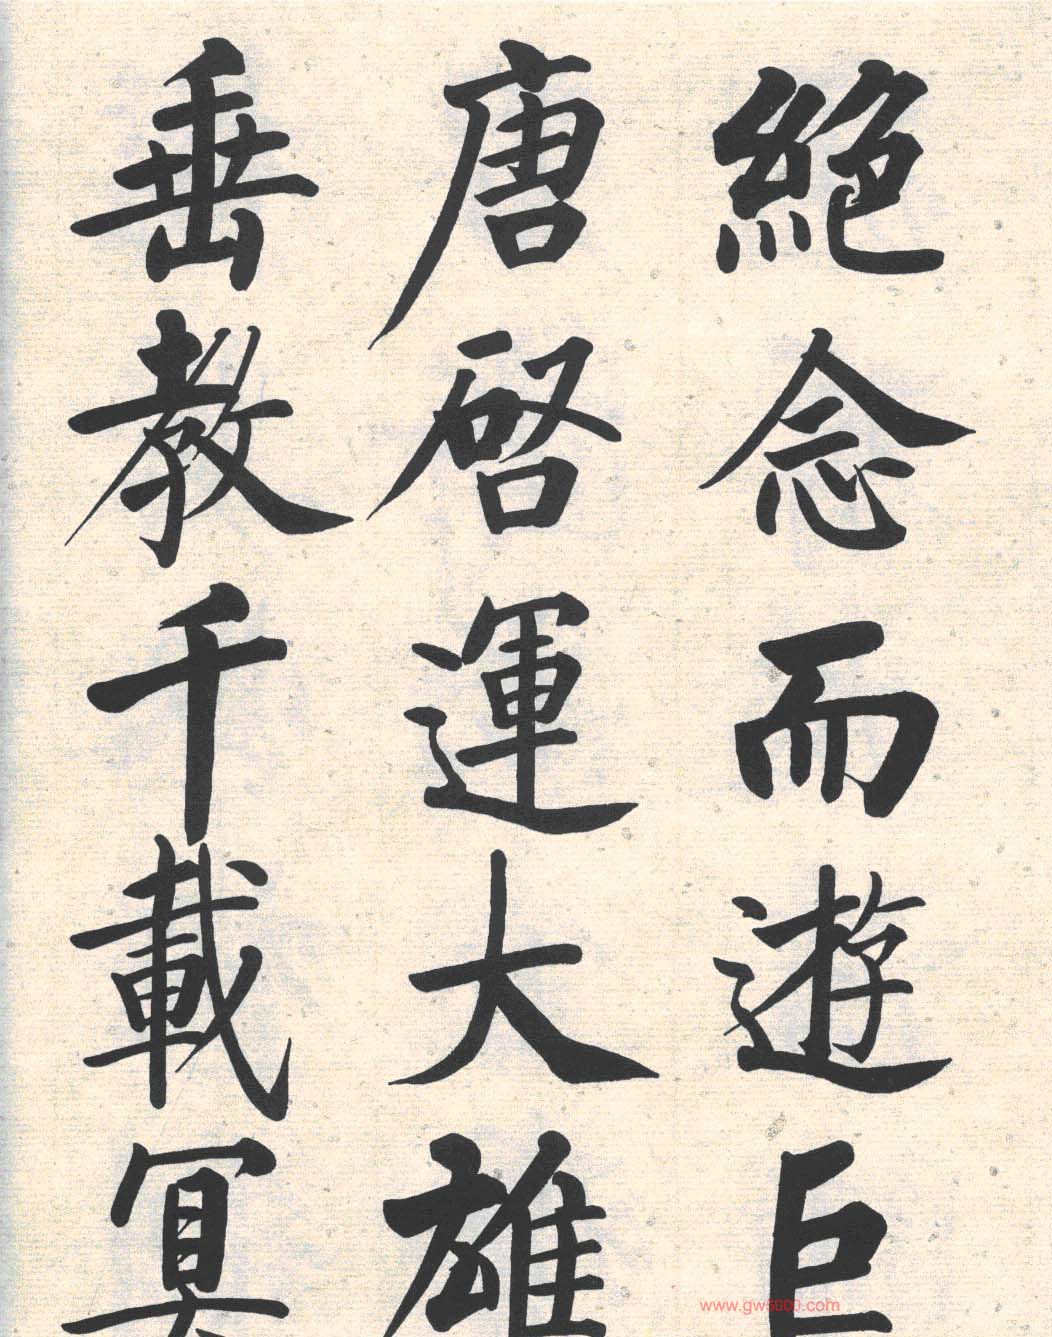 絕念而遊巨
唐啓運大雄
垂教千載冥
www.gw5000.com